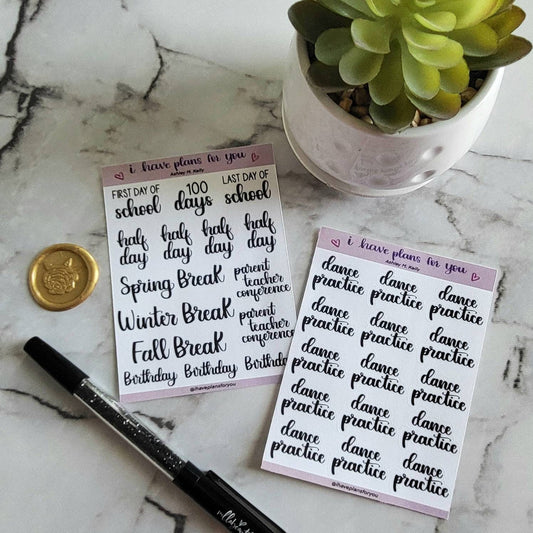 i have plans for you
Ashley M. Kelly
FIRST DAY OF school 100 days LAST DAY OF school
half day half day half day half day
Spring Break parent teacher conference
Winter Break parent teacher conference
Fall Break
Birthday Birthday Birthday
@ihaveplansforyou
i have plans for you
Ashley M. Kelly
dance practice dance practice dance practice
dance practice dance practice dance practice
dance practice dance practice dance practice
dance practice dance practice dance practice
dance practice dance practice dance practice
@ihaveplansforyou